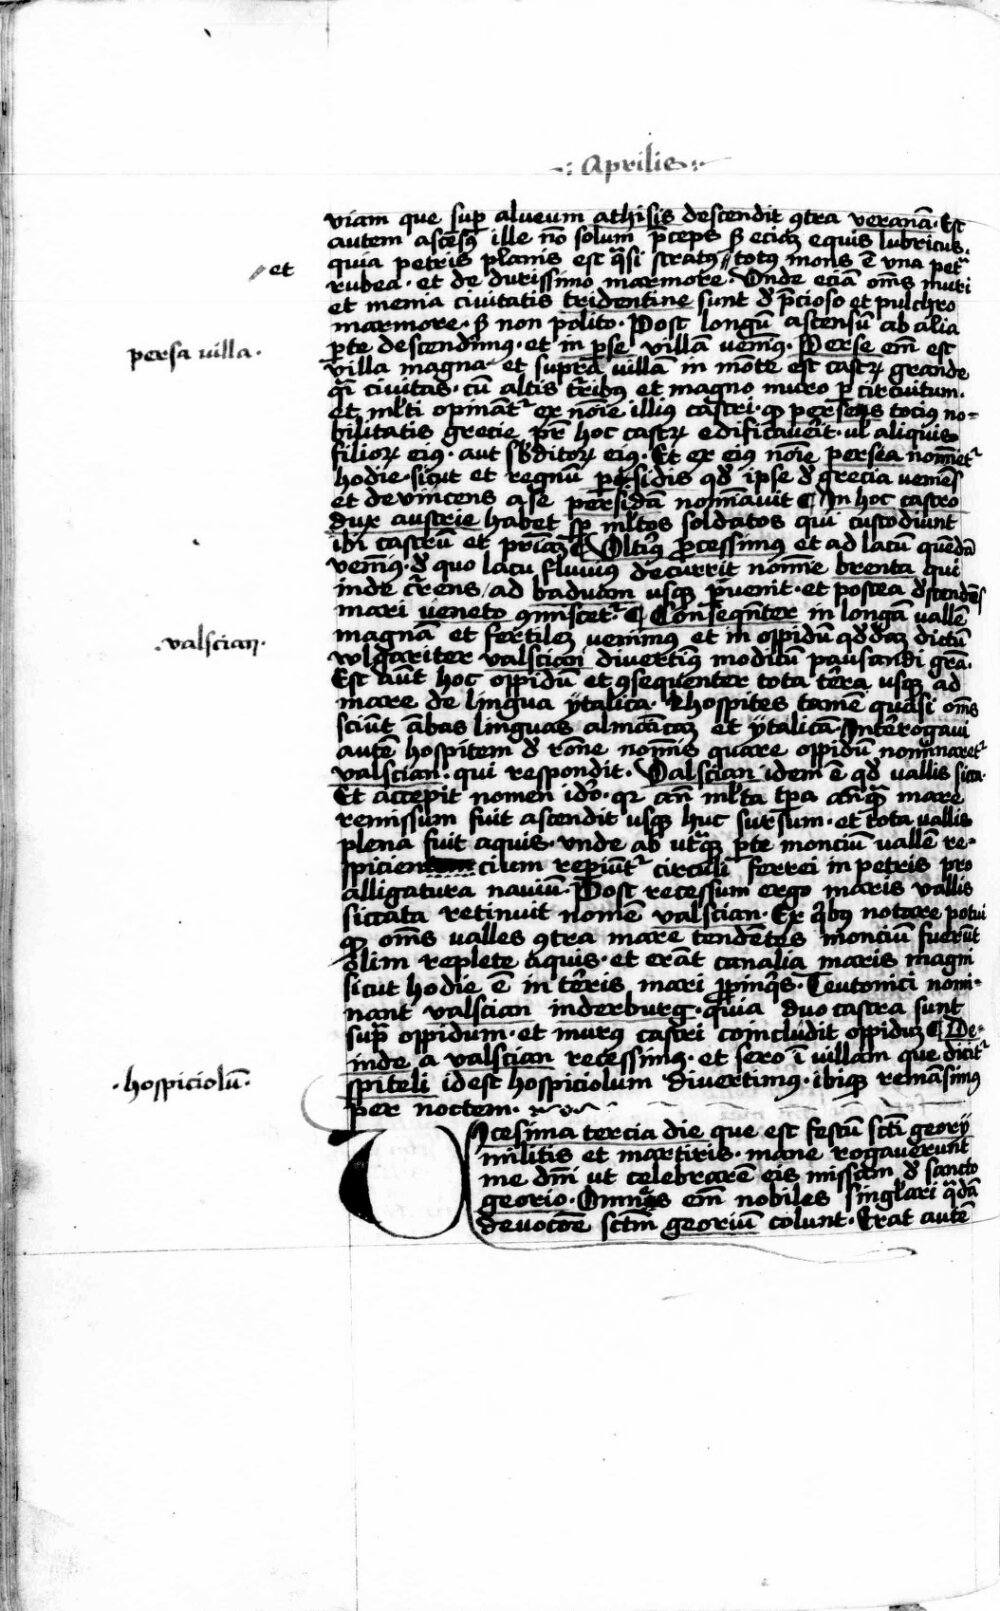 Aprilis
viam que sup̄ alveum athisis descendit ꝯtra veranā. Est
autem ascēsꝰ ille nō solum p̄ceps sꝫ eciaꝫ equis lubricus.
quia petris planis est q̄si stratꝰ totꝰ mons ē una petᵃ
et
rubea. et de durissimo marmore. Unde eciā om̄s muri
et menia civitatis tridentine sunt ď p̄cioso et pulchro
marmore. sꝫ non polito. Post longū ascensū ab alia
ꝑte descendimꝰ. et in ꝑse villā venimꝰ. Perse em̄ est
persa villa.
villa magna et supra villā in mōte est castꝝ grande
q̄i civitas. cū altis t̄ribꝰ et magno muro ꝑ circuitum.
et ml̄ti opinātᵘʳ ex noīe illiꝰ castri. ꝙ perseus tociꝰ no-
bilitatis grecie pr̄ hoc castꝝ edificaverit. vl̄ aliquis
filioꝝ eiꝰ. aut sb̄ditoꝝ eiꝰ. Et ex eiꝰ noīe persea nomīetᵘʳ
hodie. sicut et regnū persidis qď ipse ď grecia veniēs
et devincens a se persidā nomīavit ¶ In hoc castro
dux austrie habet sp̄ ml̄tos soldatos qui custodiunt
ibi castrū et pr̄iaꝫ ¶ Ultiꝰ ꝓcessimus et ad lacū quēdā
venimꝰ. ď quo lacu fluviꝰ decurrit nomīe brenta qui
inde c̄rens / ad baduam usqꝫ ꝑvenit. et postea ďscendēs
mari veneto ꝯmiscetᵘʳ ¶ Conseqn̄ter in longā vallē
magnā et fertileꝫ venimus et in oppidū qďdaꝫ dictū
.valscian.
vulgariter valscian divertiꝰ modicum pausandi grā.
Est aūt hoc oppidū et ꝯsequenter tota t̄ra usqꝫ ad
mare de lingua ÿtalica. hospites tamē quasi om̄s
sciūt ābas linguas almānicaꝫ et ÿtalicā. Int̄rogavi
autē hospitem ď rōne nomīs quare oppidū nominaretᵘʳ
valscian. qui respondit. Valscian idem ē qď vallis sicca.
Et accepit nomen idō. qꝛ an̄ ml̄ta tp̄a anq̄ᵃ mare
remissum fuit ascendit usqꝫ huc sursum. et tota vallis
plena fuit aquis. unde ab utᵃqꝫ ꝑte monciū vallē re-
spiciencium repiūtᵘʳ circuli ferrei in petris pro
alligatura naviū. Post recessum ergo maris vallis
siccata retinuit nomē valscian. Ex q̄bꝰ notare potui
ꝙ om̄s valles ꝯtra mare tendentes monciū fuerūt
olim replete aquis. et erāt canalia maris magni
sicut hodie ē in t̄ris mari ꝓpinq̄s. Teutonici nomi-
nant valscian inderburg. quia duo castra sunt
sup̄ oppidum. et murꝰ castri comcludit oppiduꝫ ¶ De-
inde a valscian recessimꝰ. et sero ī villam que dicitᵘʳ
.hospiciolū.
spiteli idest hospiciolum divertimus. ibiqꝫ remāsimus
per noctem.
Vicesima tercia die que est festū scti georÿ
militis et martiris. mane rogaverunt
me dm̄i ut celebrarē eis missam ď sancto
georio. Omnes em̄ nobiles singl̄ari q̄dā
devocōe sctm̄ georiū colunt. Erat autē